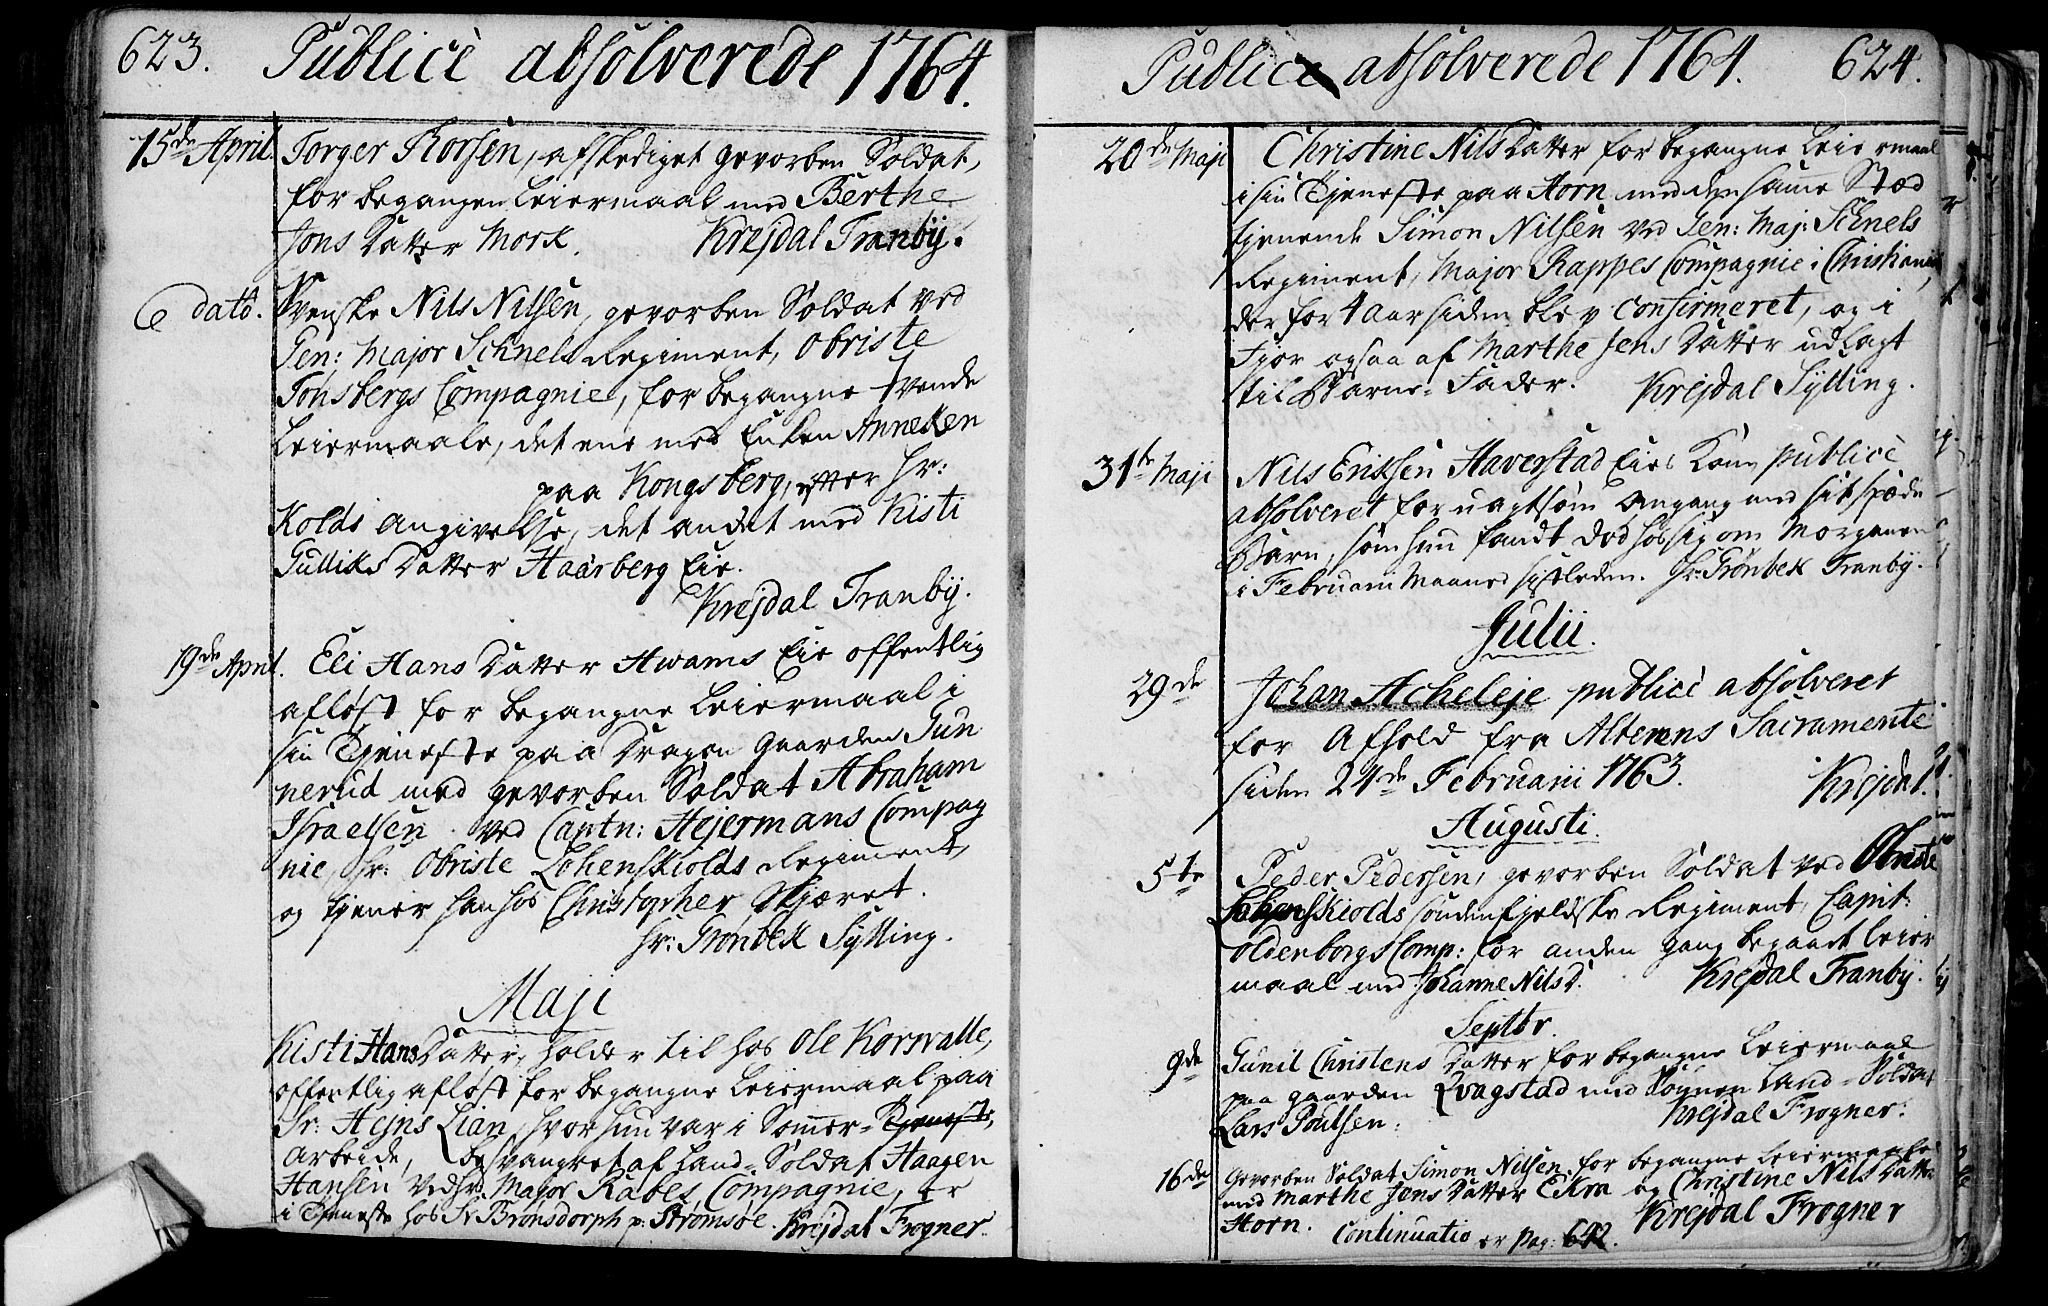 623. Publicè absolverede 1764.
15de April. Torger Thorsen, afskediget gevorben Soldat,
for begangen Leiermaal med Berthe
Jons Datter Mork. Krejdal Tranby.
e dato. Svenske Nils Nilsen, gevorben Soldat ved
Gen: Major Schnels Regiment, Obriste
Tonsbergs Compagnie, for begangne tvende
Leiermaale, det ene med Enken Anneken
paa Kongsberg, efter Hr:
Kolds angivelse, det andet med Kisti
Gulliks Datter Haarberg Eie.
Krejdal Tranby.
19de April. Eli Hans Datter Hwams Eie offentlig
afløst for begangne Leiermaal i
sin Tjeneste paa Dragon Gaarden Gun
nerud med gevorben Soldat Abraham
Israelsen ved Captn: Hejermans Compag
nie, Hr: Obriste Løhenskiolds Regiment,
og tjener han hos Christopher Skjæret.
Hr: Grønbek Sylling.
Maji
Kisti Hans Datter, holder til hos Ole Korsvalle,
offentlig afløst for begangne Leiermaal paa
Hr: Hejns Lian, hvor hun var i Sommer-Tjeneste,
Arbeide, besvangret af Land-Soldat Haagen
Hansen ved Hr: Major Rabes Compagnie, er
i Tjeneste hos Sr Brønsdorph p: Strømsøe. Krejdal Frogner.
Publice absolverede 1764. 624.
20de Maji Christine Nils Datter for begangne Leiermaal
i sin Tjeneste paa Horn med den samme Stæd
tjenende Simon Nilsen ved Gen: Maj: Schnels
Regiment, Major Rappes Compagnie i Christiania,
der for 4 Aar siden blev confirmeret, og i
Fjor ogsaa af Marthe Jens Datter udlagt
til Barne-Fader. Krejdal Sylling.
31te Maji Nils Erikssen Haverstad Eies Kone publicè
absolveret for uagtsom Omgang med sit spæde
Barn, som hun fandt død hos sig om Morgenen
i Februarii Maaned sistleden. Hr: Grønbek Tranby.
Julii.
29de Johan Acheleje publicè absolveret
for Afhold fra Alterens Sacramente
siden 24de Februarii 1763. Krejdal.
Augusti.
5te Peder Pedersen, gevorben Soldat ved Obriste
Løhenskiolds søndenfjeldske Regiment, Capit:
Oldenborgs Comp: for anden gang begaaet Leier
maal med Johanne Nils D. Krejdal Tranby.
Septbr.
9de Gunil Christens Datter for begangne Leiermaal
paa Gaarden Qvagstad med Land-Soldat
Lars Poulsen. Krejdal Frogner.
16de Gevorben Soldat Simon Nilsen for begangne Leiermaale
med Marthe Jens Datter Ekra og Christine Nils Datter
Horn. Krejdal Frogner
Continuatio er pag: 642.